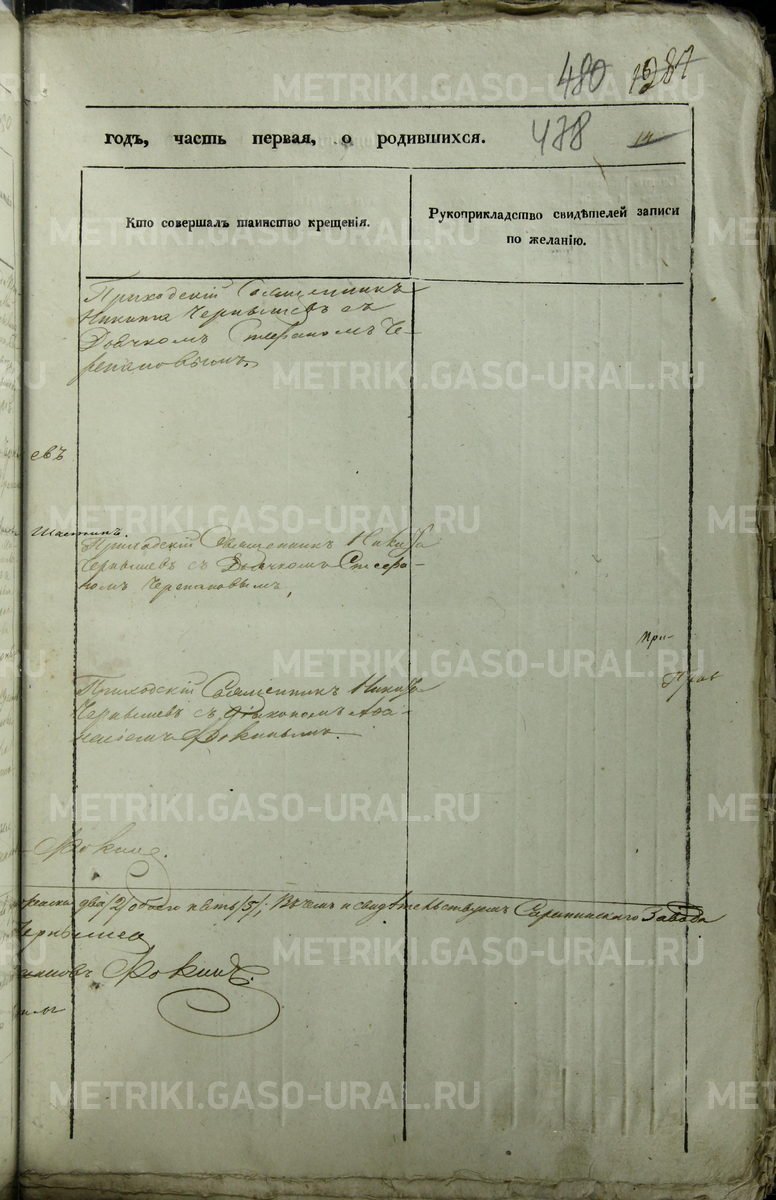 480 1287
годъ, часть первая, о родившихся. 478
Кто совершалъ таинство крещенія.
Рукоприкладство свидѣтелей записи
по желанію.
Приходскій Священникъ
Никита Чернышевъ съ
Дьячкомъ Стефаномъ Че-
репановымъ
евъ
Приходскій Священникъ Никита
Чернышевъ съ Дьячкомъ Стефа-
номъ Черепановымъ
При-
Приходскій Священникъ Никита
Чернышевъ съ Діакономъ Афа-
насіемъ Фокинымъ.
Фокинъ.
два /2/ обоего пять /5/, Въ чемъ и свидѣтельствуемъ Саранинскаго Завода
Чернышев
Фокинъ.
METRIKI.GASO-URAL.RU